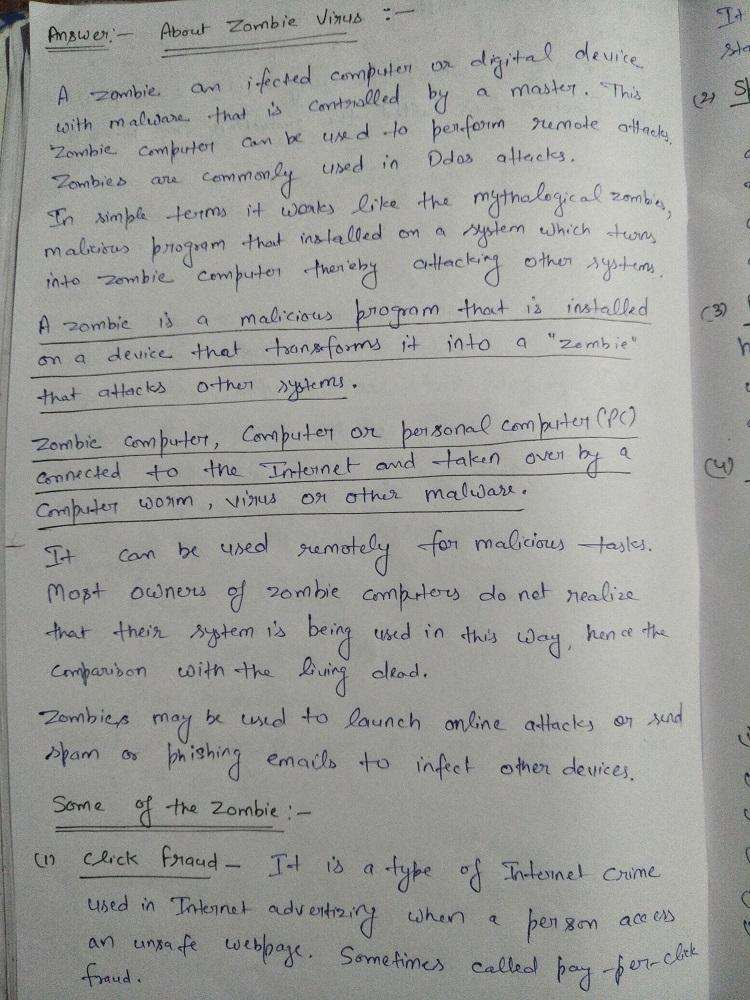 Answer:- About Zombie Virus :-
A zombie an ifected computer or digital device
with malware that is controlled by a master. This
zombie computer can be used to perform remote attacks.
Zombies are commonly used in Ddos attacks.
In simple terms it works like the mythalogical zombies,
malicious program that installed on a system which turns
into zombie computer thereby attacking other systems.
A zombie is a malicious program that is installed
on a device that transforms it into a "zombie"
that attacks other systems.
Zombie computer, Computer or personal computer (PC)
connected to the Internet and taken over by a
computer worm, virus or other malware.
It can be used remotely for malicious tasks.
Most owners of zombie computers do not realize
that their system is being used in this way, hence the
comparison with the living dead.
Zombies may be used to launch online attacks or send
spam or phishing emails to infect other devices.
Some of the zombie:-
(1) Click fraud - It is a type of Internet crime
used in Internet advertizing when a person access
an unsafe webpage. Sometimes called pay-per-click
fraud.
It
(2)
(3)
(4)